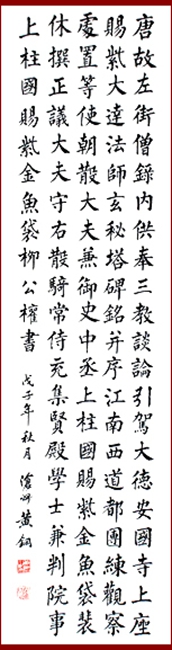 唐故左街僧錄內供奉三教談論引駕大德安國寺上座
賜紫大達法師玄秘塔碑銘并序江南西道都團練觀察
處置等使朝散大夫兼御史中丞上柱國賜紫金魚袋裴
休撰正議大夫守右散騎常侍充集賢殿學士兼判院事
上柱國賜紫金魚袋柳公權書 戊子年秋月 滄州黃